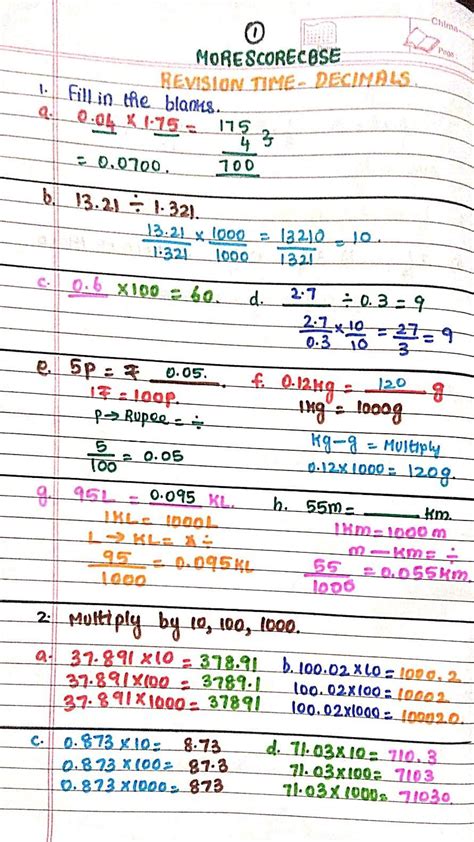 1
Chima
Pens
MORESCORECBSE
REVISION TIME - DECIMALS.
1. Fill in the blanks.
a. 0.04 × 1.75 = 175
4
= 0.0700. 700
b. 13.21 ÷ 1.321.
13.21/1.321 × 1000/1000 = 13210/1321 = 10.
c. 0.6 × 100 = 60. d. 2.7 ÷ 0.3 = 9
2.7/0.3 × 10/10 = 27/3 = 9
e. 5p = ₹ 0.05. f. 0.12kg = 120 g
1₹ = 100p. 1kg = 1000g
p → Rupee = ÷ kg-g = Multiply
5/100 = 0.05 0.12 × 1000 = 120g.
g. 95L = 0.095 KL. h. 55m = ______ km.
1KL = 1000L 1km = 1000m
L → KL = ÷ m - km = ÷
95/1000 = 0.095KL 55/1000 = 0.055km
2. Multiply by 10, 100, 1000.
a. 37.891 × 10 = 378.91 b. 100.02 × 10 = 1000.2
37.891 × 100 = 3789.1 100.02 × 100 = 10002
37.891 × 1000 = 37891 100.02 × 1000 = 100020.
c. 0.873 × 10 = 8.73 d. 71.03 × 10 = 710.3
0.873 × 100 = 87.3 71.03 × 100 = 7103
0.873 × 1000 = 873 71.03 × 1000 = 71030.